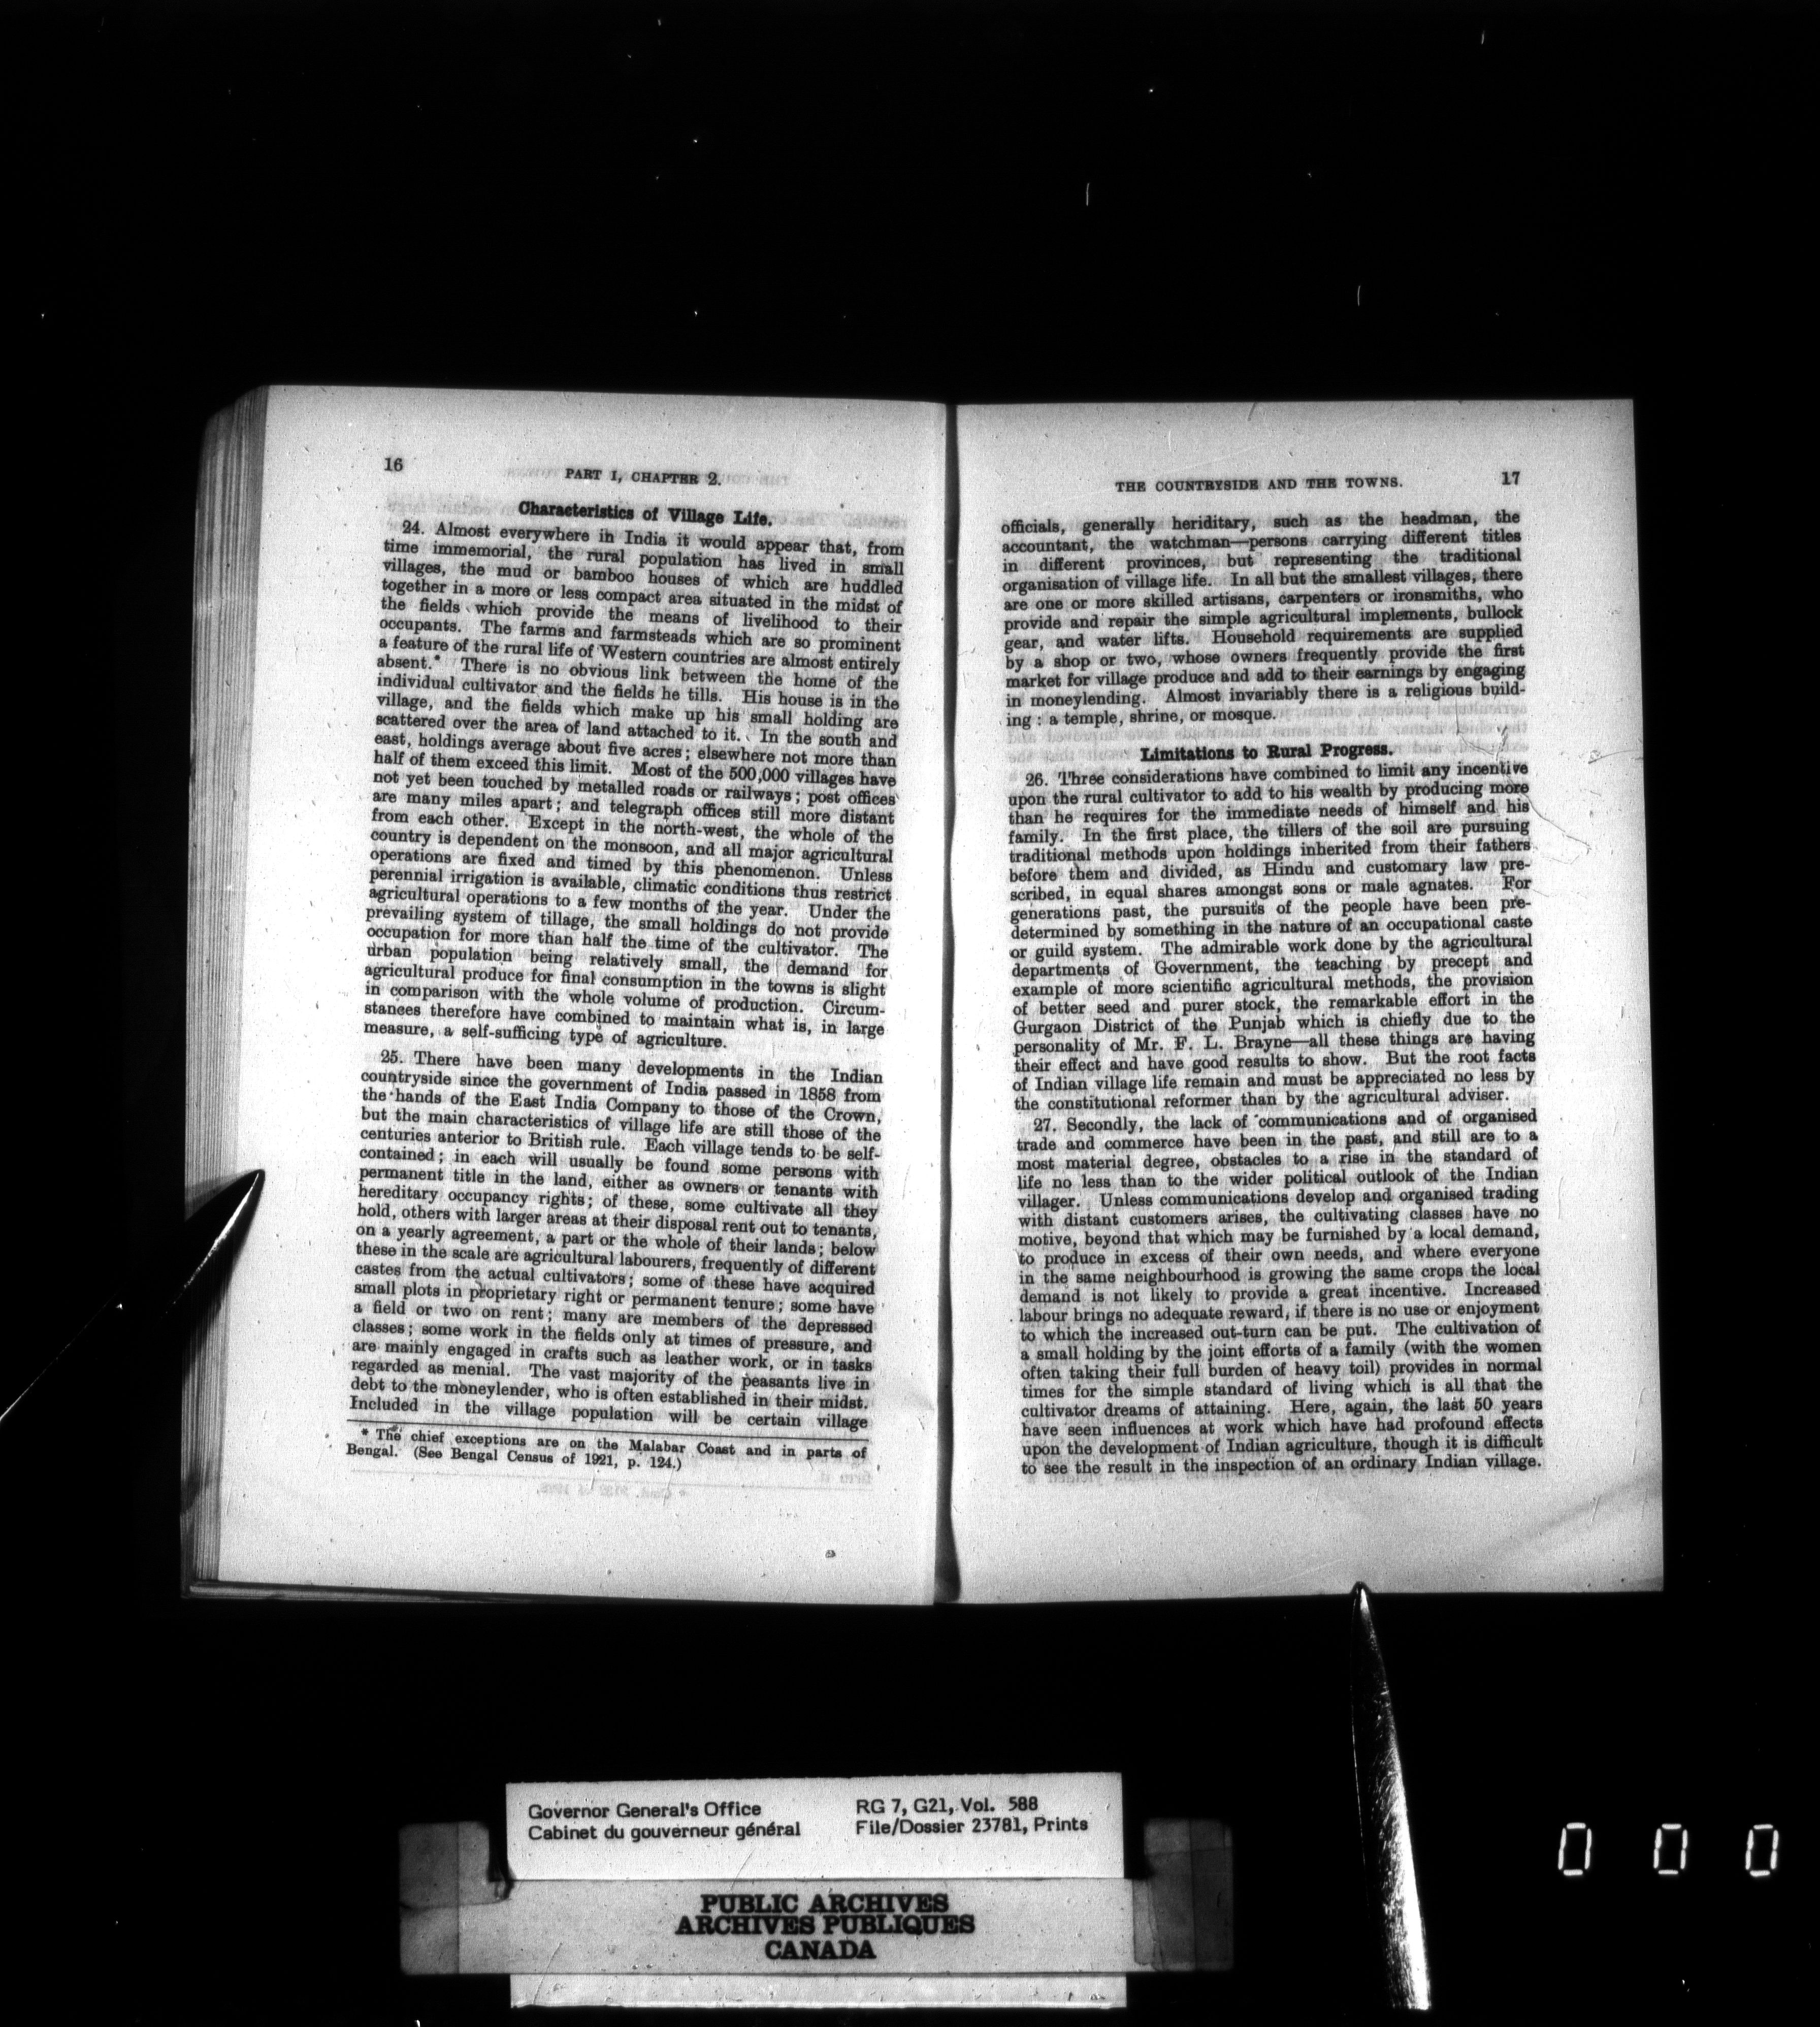 16
PART I, CHAPTER 2.
Characteristics of Village Life.
24. Almost everywhere in India it would appear that, from
time immemorial, the rural population has lived in small
villages, the mud or bamboo houses of which are huddled
together in a more or less compact area situated in the midst of
the fields which provide the means of livelihood to their
occupants. The farms and farmsteads which are so prominent
a feature of the rural life of Western countries are almost entirely
absent.* There is no obvious link between the home of the
individual cultivator and the fields he tills. His house is in the
village, and the fields which make up his small holding are
scattered over the area of land attached to it. In the south and
east, holdings average about five acres; elsewhere not more than
half of them exceed this limit. Most of the 500,000 villages have
not yet been touched by metalled roads or railways; post offices
are many miles apart; and telegraph offices still more distant
from each other. Except in the north-west, the whole of the
country is dependent on the monsoon, and all major agricultural
operations are fixed and timed by this phenomenon. Unless
perennial irrigation is available, climatic conditions thus restrict
agricultural operations to a few months of the year. Under the
prevailing system of tillage, the small holdings do not provide
occupation for more than half the time of the cultivator. The
urban population being relatively small, the demand for
agricultural produce for final consumption in the towns is slight
in comparison with the whole volume of production. Circum-
stances therefore have combined to maintain what is, in large
measure, a self-sufficing type of agriculture.
25. There have been many developments in the Indian
countryside since the government of India passed in 1858 from
the hands of the East India Company to those of the Crown,
but the main characteristics of village life are still those of the
centuries anterior to British rule. Each village tends to be self-
contained; in each will usually be found some persons with
permanent title in the land, either as owners or tenants with
hereditary occupancy rights; of these, some cultivate all they
hold, others with larger areas at their disposal rent out to tenants,
on a yearly agreement, a part or the whole of their lands; below
these in the scale are agricultural labourers, frequently of different
castes from the actual cultivators; some of these have acquired
small plots in proprietary right or permanent tenure; some have
a field or two on rent; many are members of the depressed
classes; some work in the fields only at times of pressure, and
are mainly engaged in crafts such as leather work, or in tasks
regarded as menial. The vast majority of the peasants live in
debt to the moneylender, who is often established in their midst.
Included in the village population will be certain village
* The chief exceptions are on the Malabar Coast and in parts of
Bengal. (See Bengal Census of 1921, p. 124.)
THE COUNTRYSIDE AND THE TOWNS.
17
officials, generally heriditary, such as the headman, the
accountant, the watchman—persons carrying different titles
in different provinces, but representing the traditional
organisation of village life. In all but the smallest villages, there
are one or more skilled artisans, carpenters or ironsmiths, who
provide and repair the simple agricultural implements, bullock
gear, and water lifts. Household requirements are supplied
by a shop or two, whose owners frequently provide the first
market for village produce and add to their earnings by engaging
in moneylending. Almost invariably there is a religious build-
ing : a temple, shrine, or mosque.
Limitations to Rural Progress.
26. Three considerations have combined to limit any incentive
upon the rural cultivator to add to his wealth by producing more
than he requires for the immediate needs of himself and his
family. In the first place, the tillers of the soil are pursuing
traditional methods upon holdings inherited from their fathers
before them and divided, as Hindu and customary law pre-
scribed, in equal shares amongst sons or male agnates. For
generations past, the pursuits of the people have been pre-
determined by something in the nature of an occupational caste
or guild system. The admirable work done by the agricultural
departments of Government, the teaching by precept and
example of more scientific agricultural methods, the provision
of better seed and purer stock, the remarkable effort in the
Gurgaon District of the Punjab which is chiefly due to the
personality of Mr. F. L. Brayne—all these things are having
their effect and have good results to show. But the root facts
of Indian village life remain and must be appreciated no less by
the constitutional reformer than by the agricultural adviser.
27. Secondly, the lack of communications and of organised
trade and commerce have been in the past, and still are to a
most material degree, obstacles to a rise in the standard of
life no less than to the wider political outlook of the Indian
villager. Unless communications develop and organised trading
with distant customers arises, the cultivating classes have no
motive, beyond that which may be furnished by a local demand,
to produce in excess of their own needs, and where everyone
in the same neighbourhood is growing the same crops the local
demand is not likely to provide a great incentive. Increased
labour brings no adequate reward, if there is no use or enjoyment
to which the increased out-turn can be put. The cultivation of
a small holding by the joint efforts of a family (with the women
often taking their full burden of heavy toil) provides in normal
times for the simple standard of living which is all that the
cultivator dreams of attaining. Here, again, the last 50 years
have seen influences at work which have had profound effects
upon the development of Indian agriculture, though it is difficult
to see the result in the inspection of an ordinary Indian village.
Governor General's Office
Cabinet du gouverneur général
RG 7, G21, Vol. 588
File/Dossier 23781, Prints
PUBLIC ARCHIVES
ARCHIVES PUBLIQUES
CANADA
0 0 0